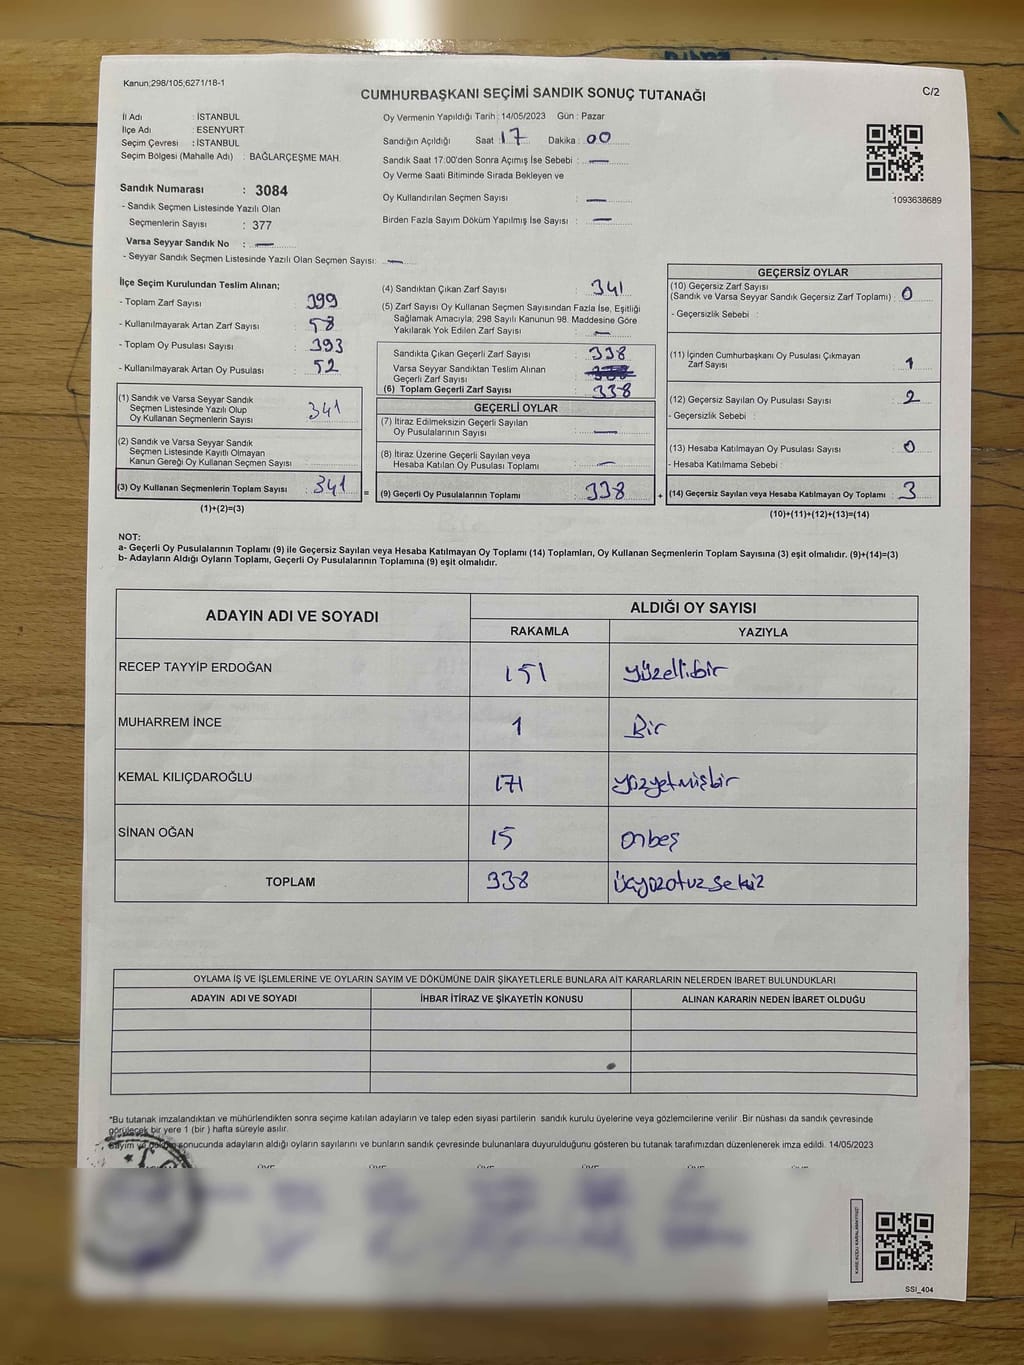 Kanun;298/105;6271/18-1
CUMHURBAŞKANI SEÇİMİ SANDIK SONUÇ TUTANAĞI
C/2
İl Adı : İSTANBUL
İlçe Adı : ESENYURT
Seçim Çevresi : İSTANBUL
Seçim Bölgesi (Mahalle Adı) : BAĞLARÇEŞME MAH.
Sandık Numarası : 3084
- Sandık Seçmen Listesinde Yazılı Olan
Seçmenlerin Sayısı : 377
Varsa Seyyar Sandık No : —
- Seyyar Sandık Seçmen Listesinde Yazılı Olan Seçmen Sayısı: —
Oy Vermenin Yapıldığı Tarih : 14/05/2023 Gün : Pazar
Sandığın Açıldığı Saat : 17 Dakika : 00
Sandık Saat 17:00'den Sonra Açımış İse Sebebi : —
Oy Verme Saati Bitiminde Sırada Bekleyen ve
Oy Kullandırılan Seçmen Sayısı : —
Birden Fazla Sayım Döküm Yapılmış İse Sayısı : —
1093638689
İlçe Seçim Kurulundan Teslim Alınan;
- Toplam Zarf Sayısı : 399
- Kullanılmayarak Artan Zarf Sayısı : 58
- Toplam Oy Pusulası Sayısı : 393
- Kullanılmayarak Artan Oy Pusulası : 52
(1) Sandık ve Varsa Seyyar Sandık
Seçmen Listesinde Yazılı Olup
Oy Kullanan Seçmenlerin Sayısı : 341
(2) Sandık ve Varsa Seyyar Sandık
Seçmen Listesinde Kayıtlı Olmayan
Kanun Gereği Oy Kullanan Seçmen Sayısı :
(3) Oy Kullanan Seçmenlerin Toplam Sayısı : 341
(1)+(2)=(3)
(4) Sandıktan Çıkan Zarf Sayısı : 341
(5) Zarf Sayısı Oy Kullanan Seçmen Sayısından Fazla İse, Eşitliği
Sağlamak Amacıyla; 298 Sayılı Kanunun 98. Maddesine Göre
Yakılarak Yok Edilen Zarf Sayısı : —
Sandıkta Çıkan Geçerli Zarf Sayısı : 338
Varsa Seyyar Sandıktan Teslim Alınan
Geçerli Zarf Sayısı :
(6) Toplam Geçerli Zarf Sayısı : 338
GEÇERLİ OYLAR
(7) İtiraz Edilmeksizin Geçerli Sayılan
Oy Pusulalarının Sayısı : —
(8) İtiraz Üzerine Geçerli Sayılan veya
Hesaba Katılan Oy Pusulası Toplamı : —
= (9) Geçerli Oy Pusulalarının Toplamı : 338
GEÇERSİZ OYLAR
(10) Geçersiz Zarf Sayısı
(Sandık ve Varsa Seyyar Sandık Geçersiz Zarf Toplamı) : 0
- Geçersizlik Sebebi :
(11) İçinden Cumhurbaşkanı Oy Pusulası Çıkmayan
Zarf Sayısı : 1
(12) Geçersiz Sayılan Oy Pusulası Sayısı : 2
- Geçersizlik Sebebi :
(13) Hesaba Katılmayan Oy Pusulası Sayısı : 0
- Hesaba Katılmama Sebebi :
+ (14) Geçersiz Sayılan veya Hesaba Katılmayan Oy Toplamı : 3
(10)+(11)+(12)+(13)=(14)
NOT:
a- Geçerli Oy Pusulalarının Toplamı (9) ile Geçersiz Sayılan veya Hesaba Katılmayan Oy Toplamı (14) Toplamları, Oy Kullanan Seçmenlerin Toplam Sayısına (3) eşit olmalıdır. (9)+(14)=(3)
b- Adayların Aldığı Oyların Toplamı, Geçerli Oy Pusulalarının Toplamına (9) eşit olmalıdır.
ADAYIN ADI VE SOYADI ALDIĞI OY SAYISI
RAKAMLA YAZIYLA
RECEP TAYYİP ERDOĞAN 151 yüzellibir
MUHARREM İNCE 1 Bir
KEMAL KILIÇDAROĞLU 171 yüzyetmişbir
SİNAN OĞAN 15 onbeş
TOPLAM 338 üçyüzotuzsekiz
OYLAMA İŞ VE İŞLEMLERİNE VE OYLARIN SAYIM VE DÖKÜMÜNE DAİR ŞİKAYETLERLE BUNLARA AİT KARARLARIN NELERDEN İBARET BULUNDUKLARI
ADAYIN ADI VE SOYADI İHBAR İTİRAZ VE ŞİKAYETİN KONUSU ALINAN KARARIN NEDEN İBARET OLDUĞU
*Bu tutanak imzalandıktan ve mühürlendikten sonra seçime katılan adayların ve talep eden siyasi partilerin sandık kurulu üyelerine veya gözlemcilerine verilir .Bir nüshası da sandık çevresinde
görülecek bir yere 1 (bir ) hafta süreyle asılır.
Sayım ve döküm sonucunda adayların aldığı oyların sayılarını ve bunların sandık çevresinde bulunanlara duyurulduğunu gösteren bu tutanak tarafımızdan düzenlenerek imza edildi. 14/05/2023
SSI_404